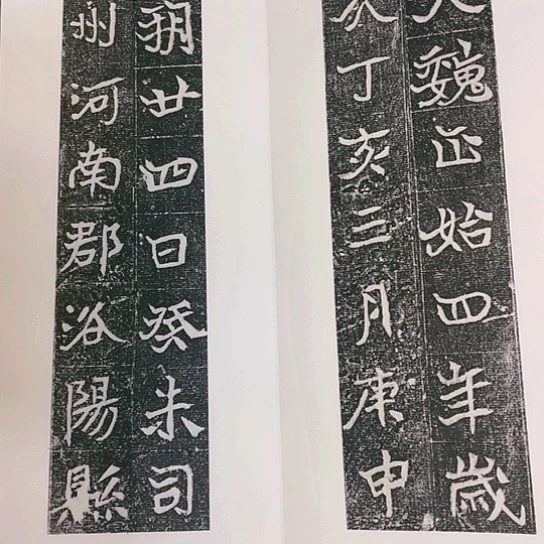 大魏正始四年歲
次丁亥三月庚申
朔廿四日癸未司
州河南郡洛陽縣